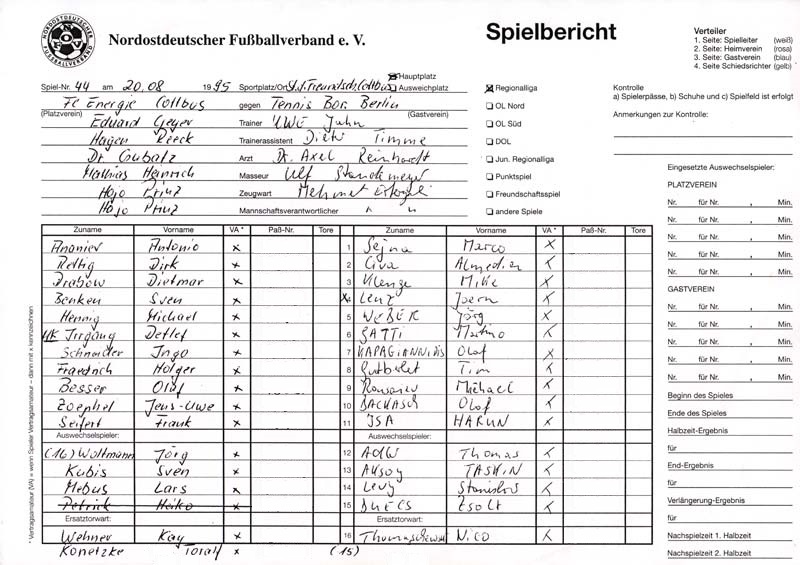 NORDOSTDEUTSCHER FUSSBALLVERBAND
NOFV
Nordostdeutscher Fußballverband e. V.
Spielbericht
Verteiler
1. Seite: Spielleiter (weiß)
2. Seite: Heimverein (rosa)
3. Seite: Gastverein (blau)
4. Seite Schiedsrichter (gelb)
Spiel-Nr. 44 am 20.08 1995 Sportplatz/Ort Freundsch. Cottbus Hauptplatz
Ausweichplatz
FC Energie Cottbus gegen Tennis Bor. Berlin
(Platzverein) (Gastverein)
Eduard Geyer Trainer UWE Jahn
Hagen Reeck Trainerassistent Timme
Dr. Gubatz Arzt Dr. Axel Reinhardt
Matthias Heinrich Masseur Ulf
Hojo Prinz Zeugwart Mehmet
Hojo Prinz Mannschaftsverantwortlicher
Regionalliga
OL Nord
OL Süd
DOL
Jun. Regionalliga
Punktspiel
Freundschaftsspiel
andere Spiele
Kontrolle
a) Spielerpässe, b) Schuhe und c) Spielfeld ist erfolgt
Anmerkungen zur Kontrolle:
Zuname Vorname VA * Paß-Nr. Tore Zuname Vorname VA * Paß-Nr. Tore
Ananiev Antonio x 1 Sejna Marco x
Rettig Dirk x 2 Civa Almedien x
Drabow Dietmar x 3 Klenge Mike x
Benken Sven x Lenz Joern x
Hennig Michael x 5 WEBER Jörg x
MK Jirgang Detlef x 6 GATTI Martino x
Schneider Ingo x 7 KARAGIANNIDIS Olaf x
Friedrich Holger x 8 Gutberlet Tim x
Besser Olaf x 9 Michael x
Zoephel Jens-Uwe x 10 BACKASCH Olaf x
Seifert Frank x 11 ISA HARUN x
Auswechselspieler: Auswechselspieler:
(16) Woltmann Jörg x 12 ADW Thomas x
Kubis Sven x 13 AKSOY TASKIN x
Mebus Lars x 14 Levy Stanislav x
Petrick Heiko x 15 BUECS ZSOLT x
Ersatztorwart: Ersatztorwart:
Wehner Kay x 16 Thomaschewski NICO x
Konetzke Toralf x (15)
* Vertragsamateur (VA) = wenn Spieler Vertragsamateur – dann mit x kennzeichnen
Eingesetzte Auswechselspieler:
PLATZVEREIN
Nr. für Nr. , Min.
Nr. für Nr. , Min.
Nr. für Nr. , Min.
Nr. für Nr. , Min.
Nr. für Nr. , Min.
GASTVEREIN
Nr. für Nr. , Min.
Nr. für Nr. , Min.
Nr. für Nr. , Min.
Nr. für Nr. , Min.
Nr. für Nr. , Min.
Beginn des Spieles
Ende des Spieles
Halbzeit-Ergebnis
für
End-Ergebnis
für
Verlängerung-Ergebnis
für
Nachspielzeit 1. Halbzeit
Nachspielzeit 2. Halbzeit